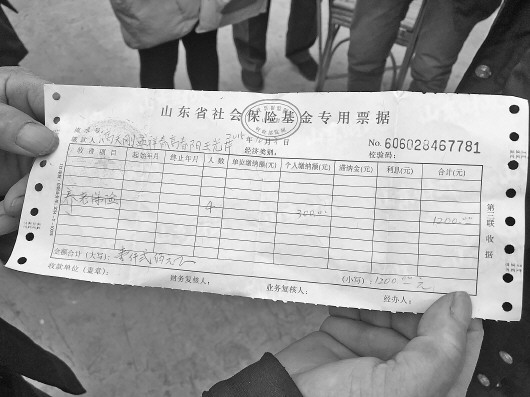 山东省社会保险基金专用票据
No. 606028467781
缴款人 年 月 日 经济类别: 校验码:
收费项目 起始年月 终止年月 人数 单位缴纳额(元) 个人缴纳额(元) 滞纳金(元) 利息(元) 合计(元)
养老保险 4 300.00 1200.00
金额合计(大写): 壹仟贰佰元 (小写): 1200.00 元
收款单位(盖章): 财务复核人: 业务复核人: 经办人:
第二联 收据